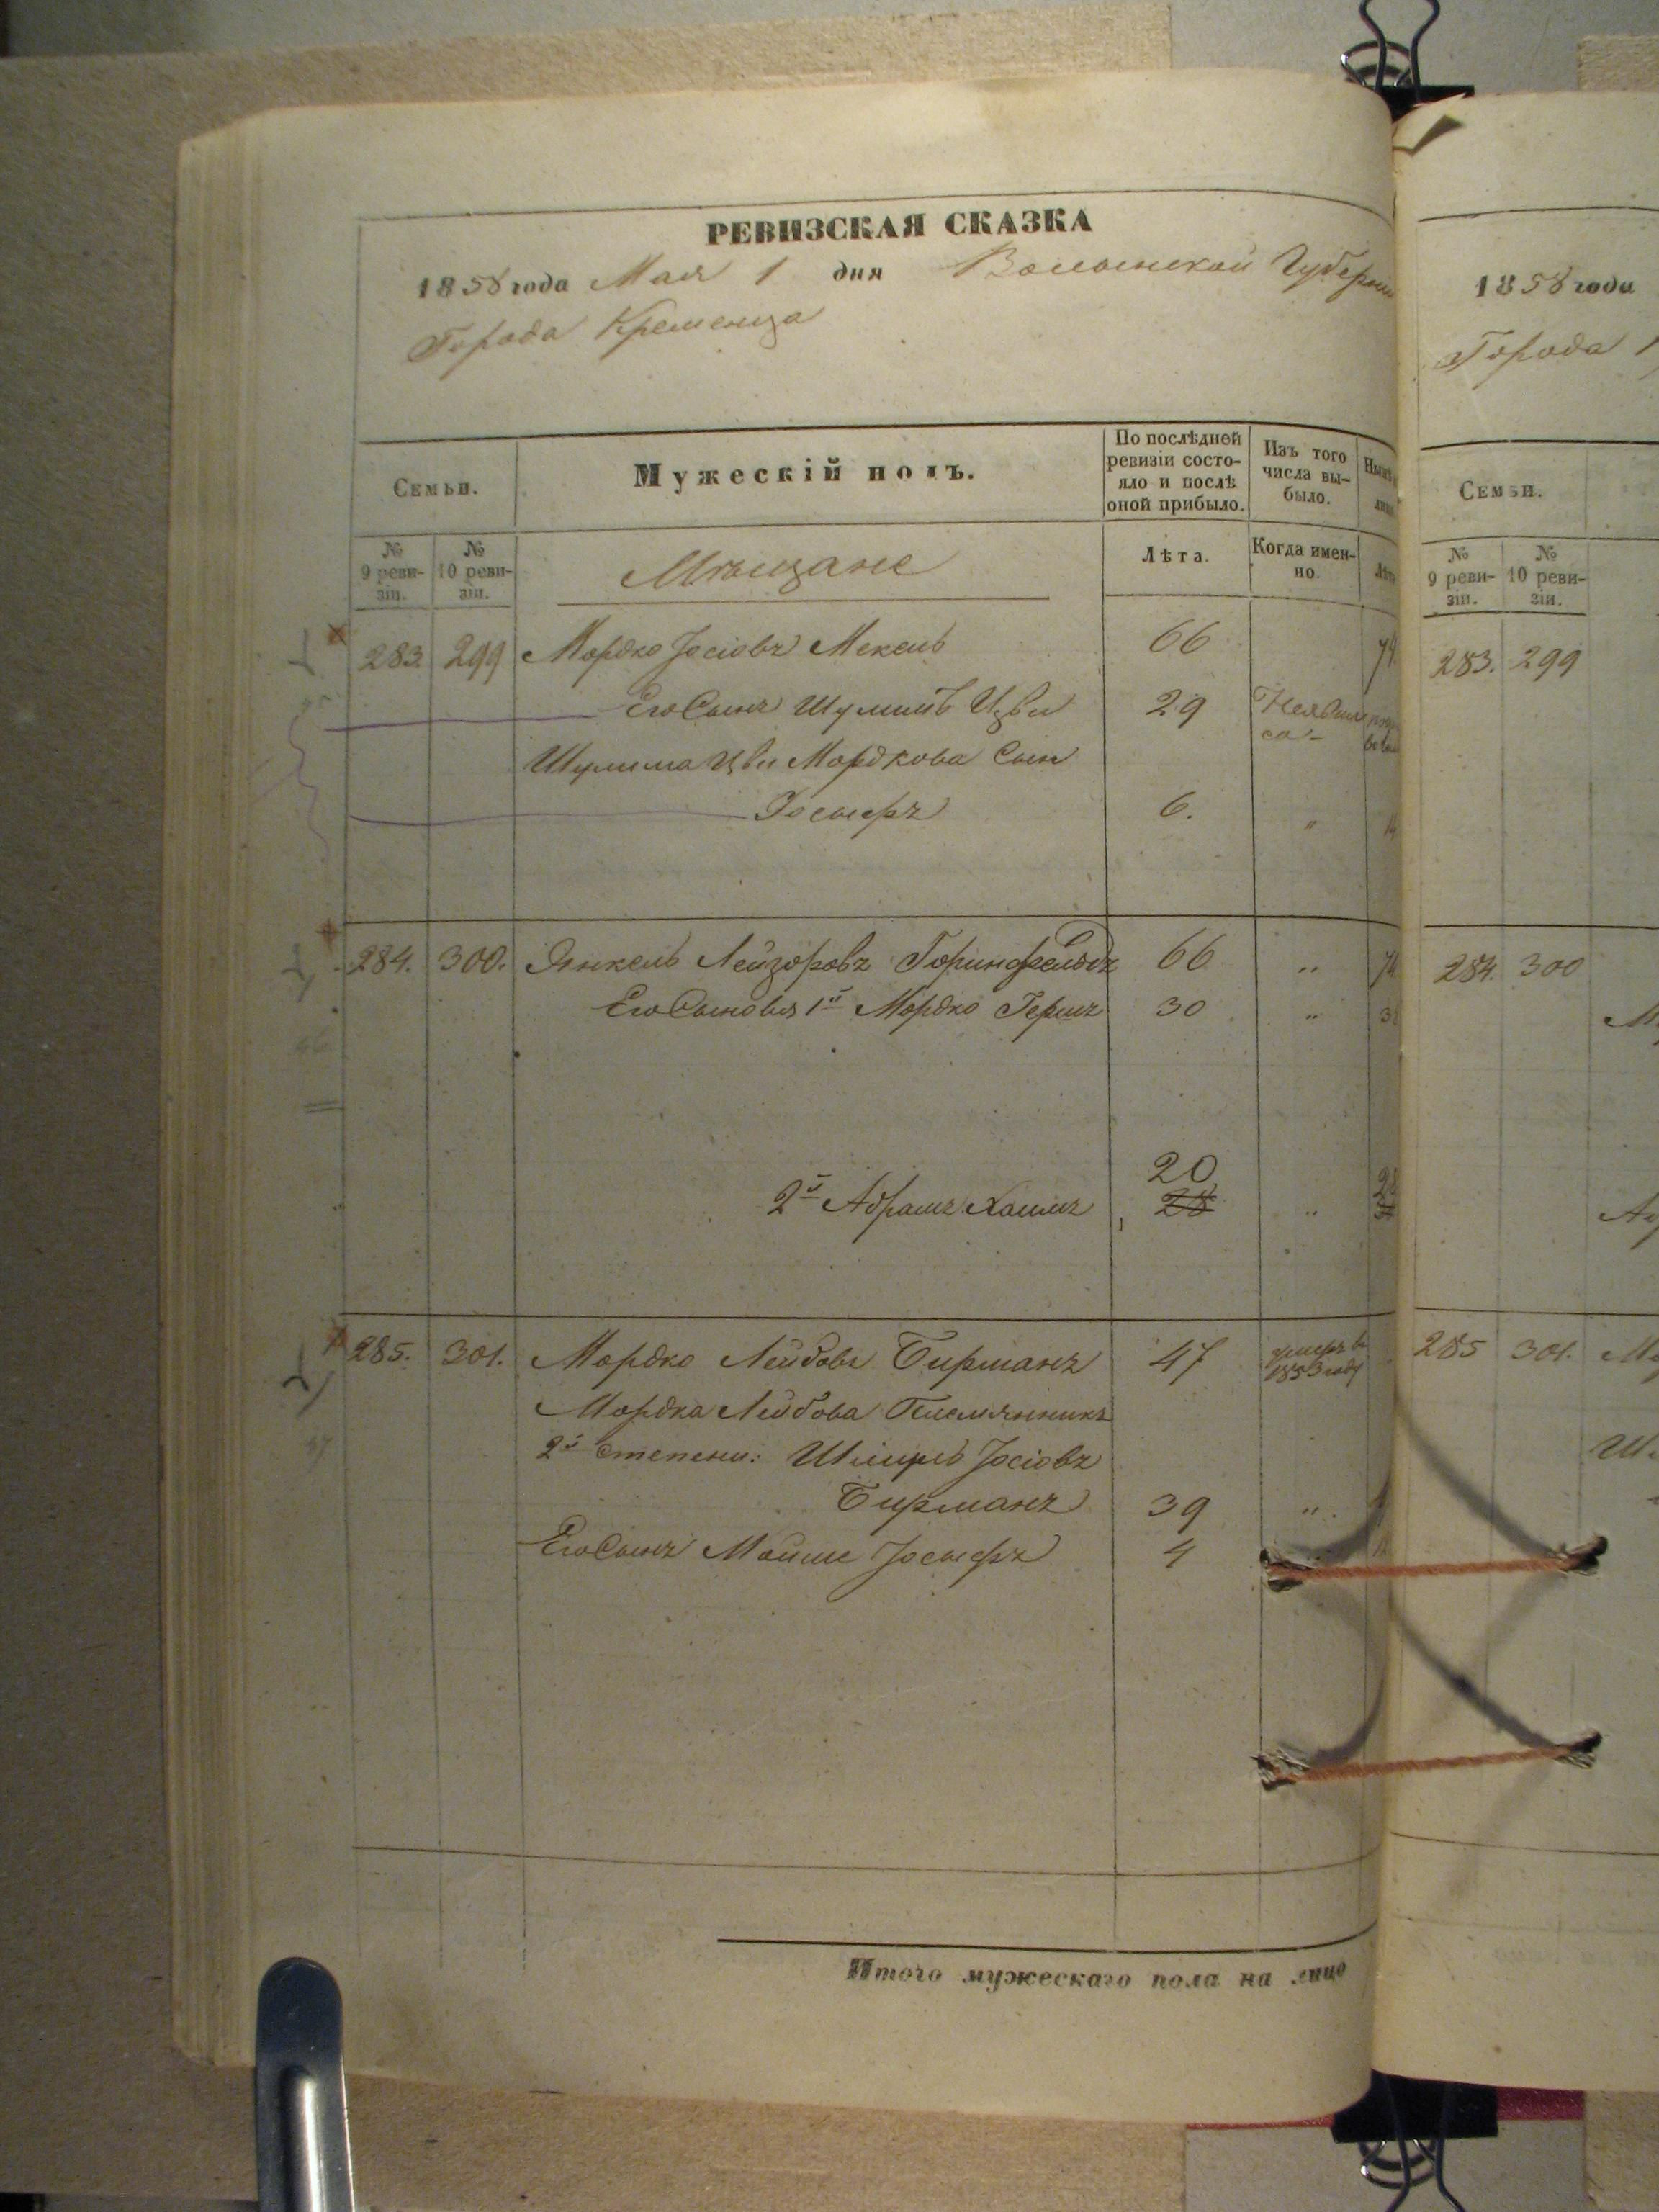 РЕВИЗСКАЯ СКАЗКА
1858 года Мая 1 дня Волынской Губерніи
Города Кременца
Семьи.
Мужескій полъ.
По послѣдней ревизіи состо-
яло и послѣ
оной прибыло.
Изъ того
числа вы-
было.
№ 9 реви-
зіи.
№ 10 реви-
зіи.
Мѣщане
Лѣта.
Когда имен-
но.
283. 299 Мордко Іосіовъ Мекель 66 74
Его Сынъ Шулимъ Цви 29 Неявил
ся
Шулима Цви Мордкова Сын
Іосыфъ 6. "
284. 300. Янкель Лейзоровъ Горинфельдъ 66 " 74
Его Сыновья 1й Мордко Гершъ 30 " 38
20
2й Абрамъ Хаимъ 28 "
285. 301. Мордко Лейбовъ Бирманъ 47 умеръ въ
1853 году
Мордка Лейбова Племянникъ
2й степени: Шмуль Іосіовъ
Бирманъ 39 "
Его Сынъ Мойше Іосыфъ 4
Итого мужескаго пола на лицо
1858 года
Города
Семьи.
№ 9 реви-
зіи.
№ 10 реви-
зіи.
283. 299
284. 300
285 301.